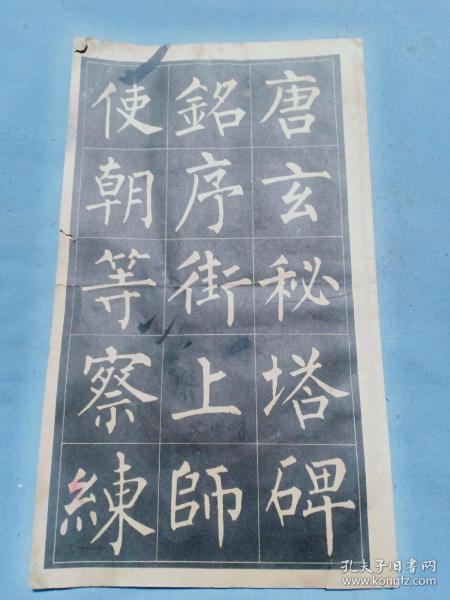 唐玄秘塔碑
銘序街上師
使朝等察練
孔夫子旧书网
www.kongfz.com